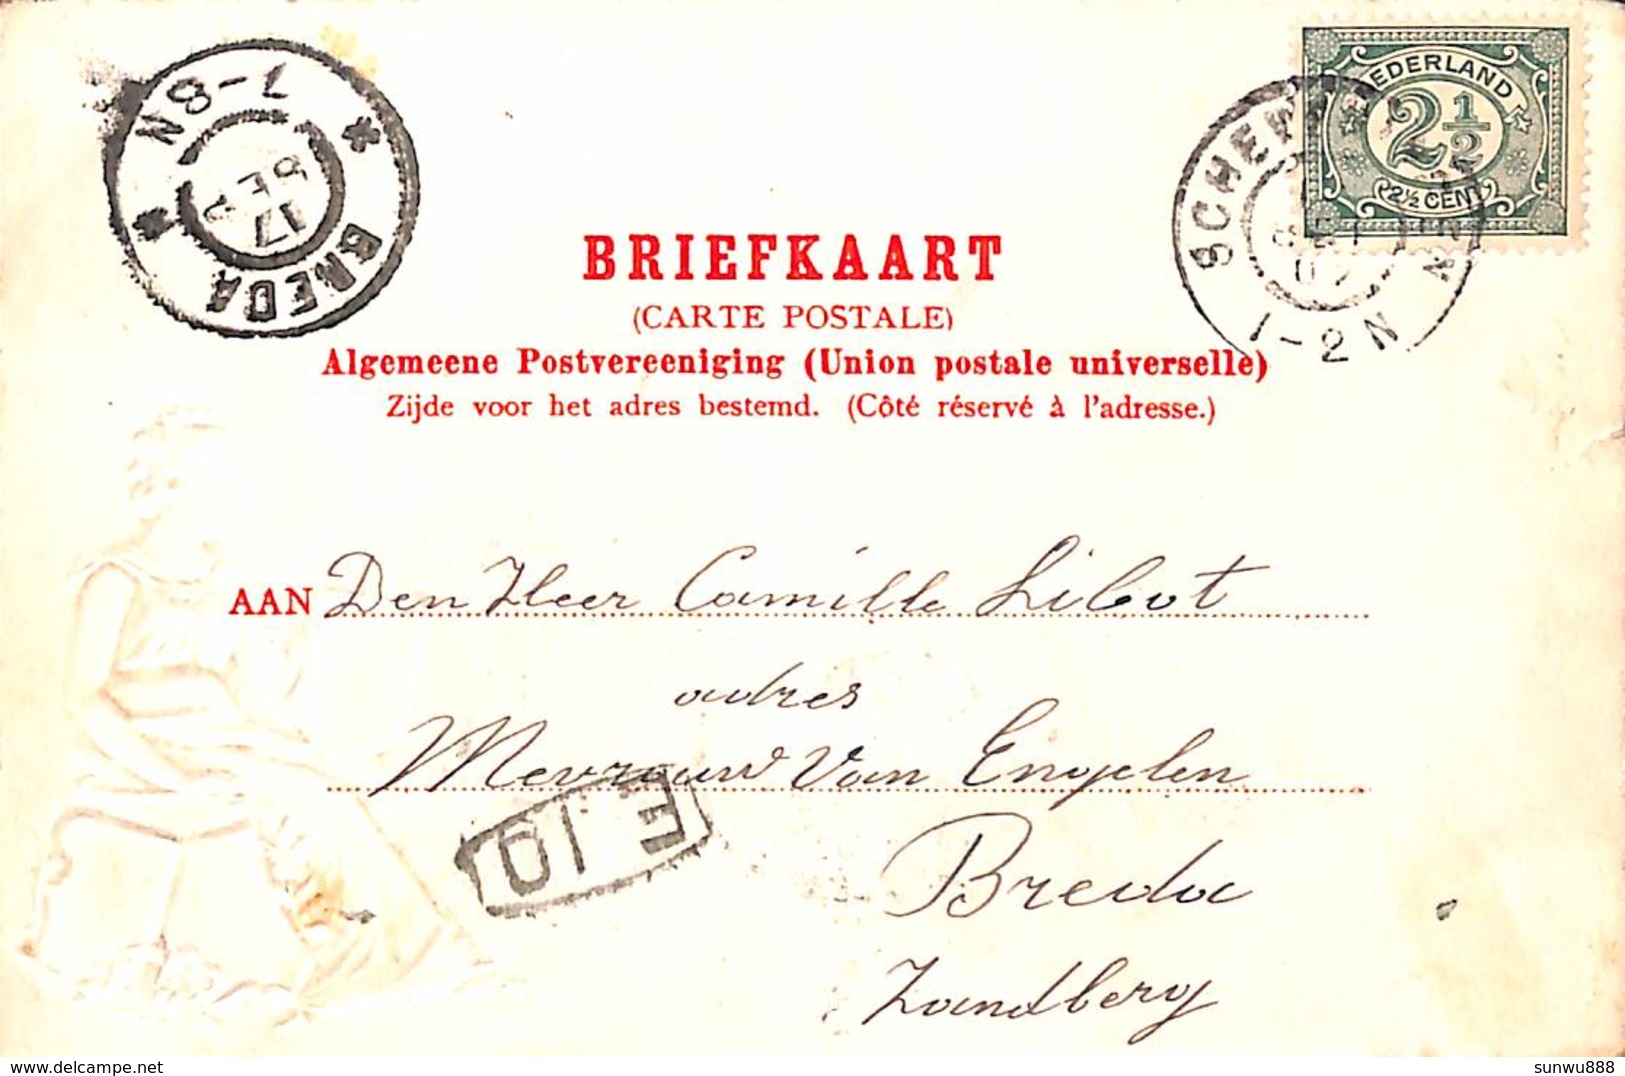 7-8N
17
BREDA
NEDERLAND
2½
2½ CENT
SCHEV
1-2N
BRIEFKAART
(CARTE POSTALE)
Algemeene Postvereeniging (Union postale universelle)
Zijde voor het adres bestemd. (Côté réservé à l'adresse.)
AAN Den Heer Camille Libot
adres
Mevrouw Van Engelen
E 19
Breda
Zandberg
delcampe.net
sunwu888